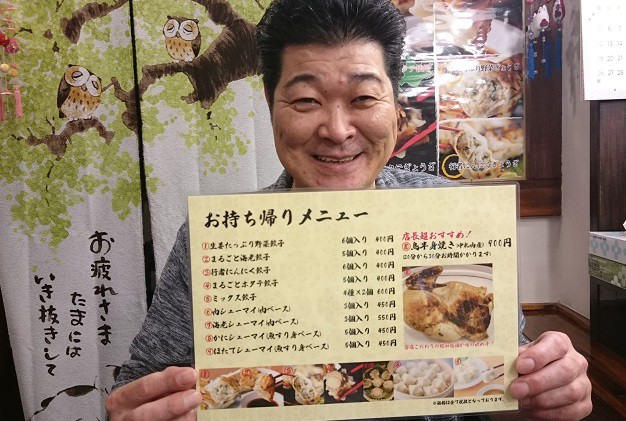 お持ち帰りメニュー
①生姜たっぷり野菜餃子 6個入り 400円
②まるごと海老餃子 5個入り 400円
③行者にんにく餃子 5個入り 400円
④まるごとホタテ餃子 5個入り 400円
⑤ミックス餃子 4種×2個 600円
⑥肉シューマイ(肉ベース) 5個入り 350円
⑦海老シューマイ(肉ベース) 5個入り 550円
⑧かにシューマイ(魚すり身ベース) 5個入り 450円
⑨ほたてシューマイ(魚すり身ベース) 5個入り 450円
店長超おすすめ!
鳥半身焼き 900円
(20分から30分お時間かかります)
お疲れさま
たまには
いき抜きして